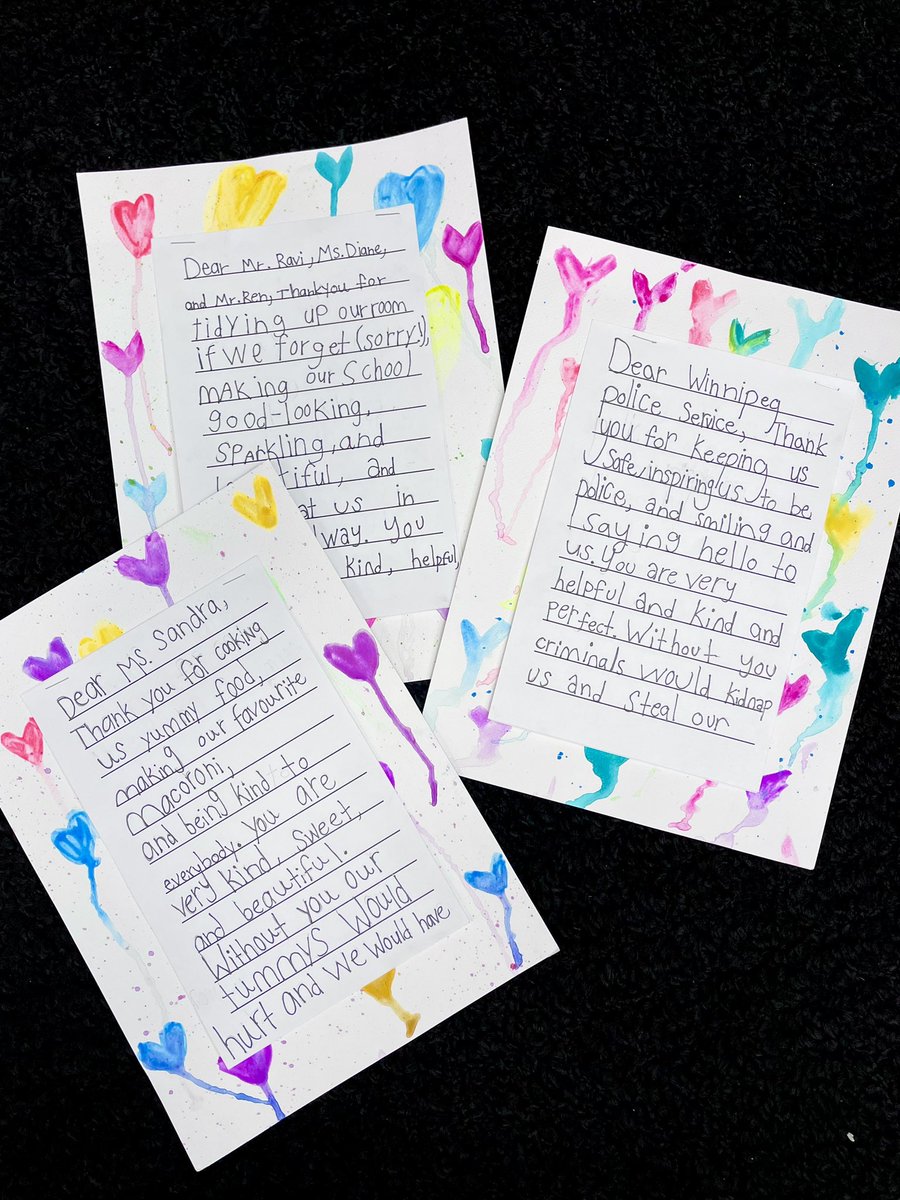 Dear Mr. Ravi, Ms. Diane,
and Mr. Ben, Thankyou for
tidying up our room
if we forget (sorry!),
making our School
good-looking,
sparkling, and
and
at us in
way. You
kind, helpful,
Dear Winnipeg
police service, Thank
you for keeping us
safe, inspiring us to be
police, and smiling and
saying hello to
us. You are very
helpful and kind and
perfect. Without you
criminals would kidnap
us and steal our
Dear Ms. Sandra,
Thank you for cooking
us yummy food,
making our favourite
macoroni,
and being kind to
everybody. You are
very kind, sweet,
and beautiful.
Without you our
tummys would
hurt and we would have